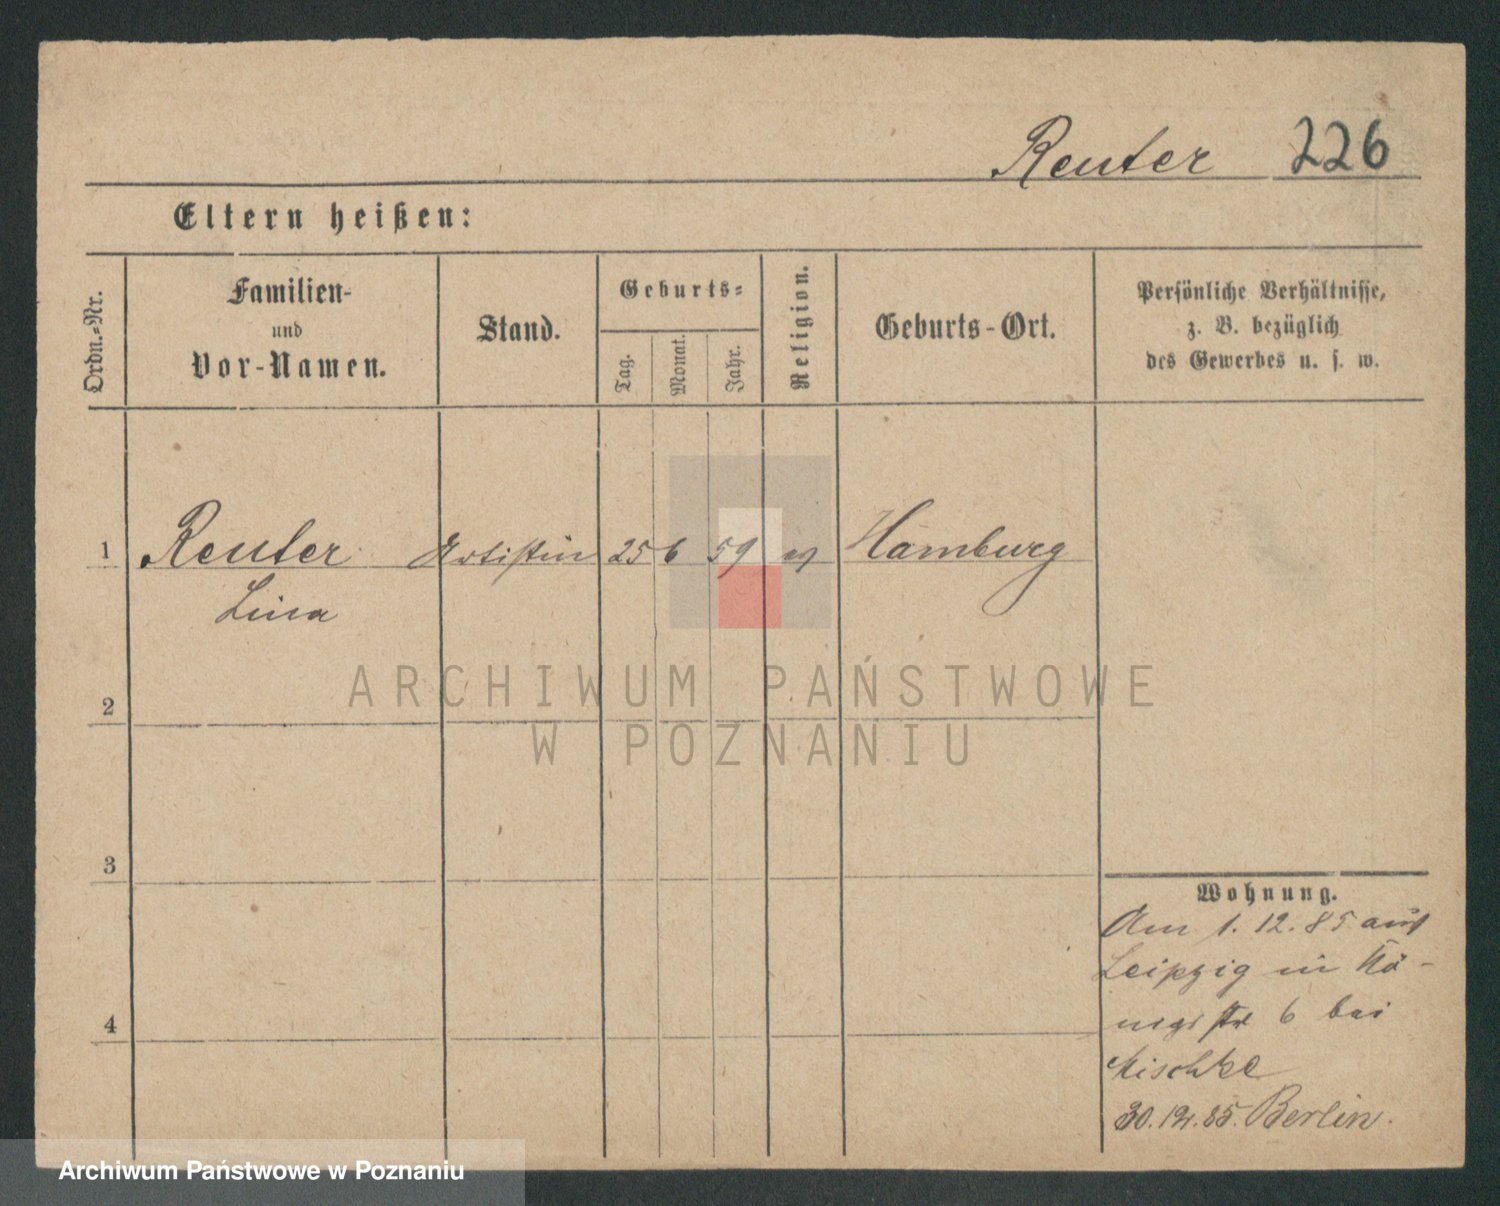 Reuter 226
Eltern heißen:
Ordn.-Nr.
Familien-
und
Vor-Namen.
Stand.
Geburts-
Tag.
Monat.
Jahr.
Religion.
Geburts-Ort.
Persönliche Verhältnisse,
z. B. bezüglich
des Gewerbes u. s. w.
1 Reuter Artistin 25 6 59 Hamburg
Lina
2
3
4
Wohnung.
Am 1. 12. 85 aus
Leipzig in Kö-
nigsstr 6 bei
Mischke
30. 12. 85. Berlin.
ARCHIWUM PAŃSTWOWE
W POZNANIU
Archiwum Państwowe w Poznaniu